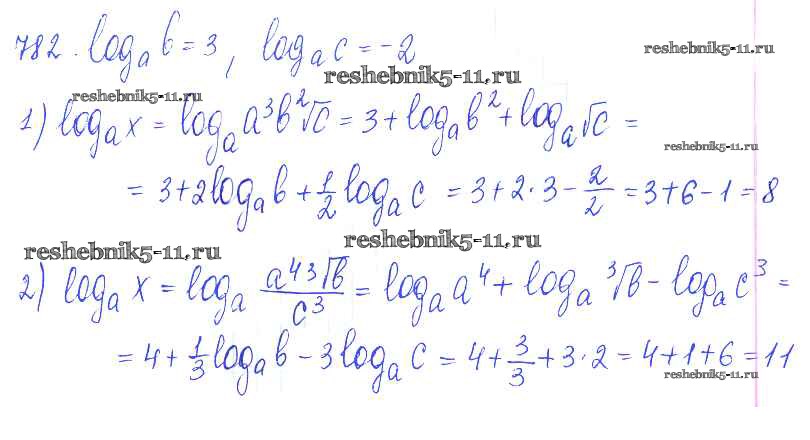 782. logₐ b = 3, logₐ c = -2
reshebnik5-11.ru
reshebnik5-11.ru
reshebnik5-11.ru
1) logₐ x = logₐ a³b²√c = 3 + logₐ b² + logₐ √c =
reshebnik5-11.ru
= 3 + 2logₐ b + 1/2 logₐ c = 3 + 2·3 - 2/2 = 3 + 6 - 1 = 8
reshebnik5-11.ru
reshebnik5-11.ru
2) logₐ x = logₐ (a⁴ ³√b)/c³ = logₐ a⁴ + logₐ ³√b - logₐ c³ =
= 4 + 1/3 logₐ b - 3logₐ c = 4 + 3/3 + 3·2 = 4 + 1 + 6 = 11
reshebnik5-11.ru